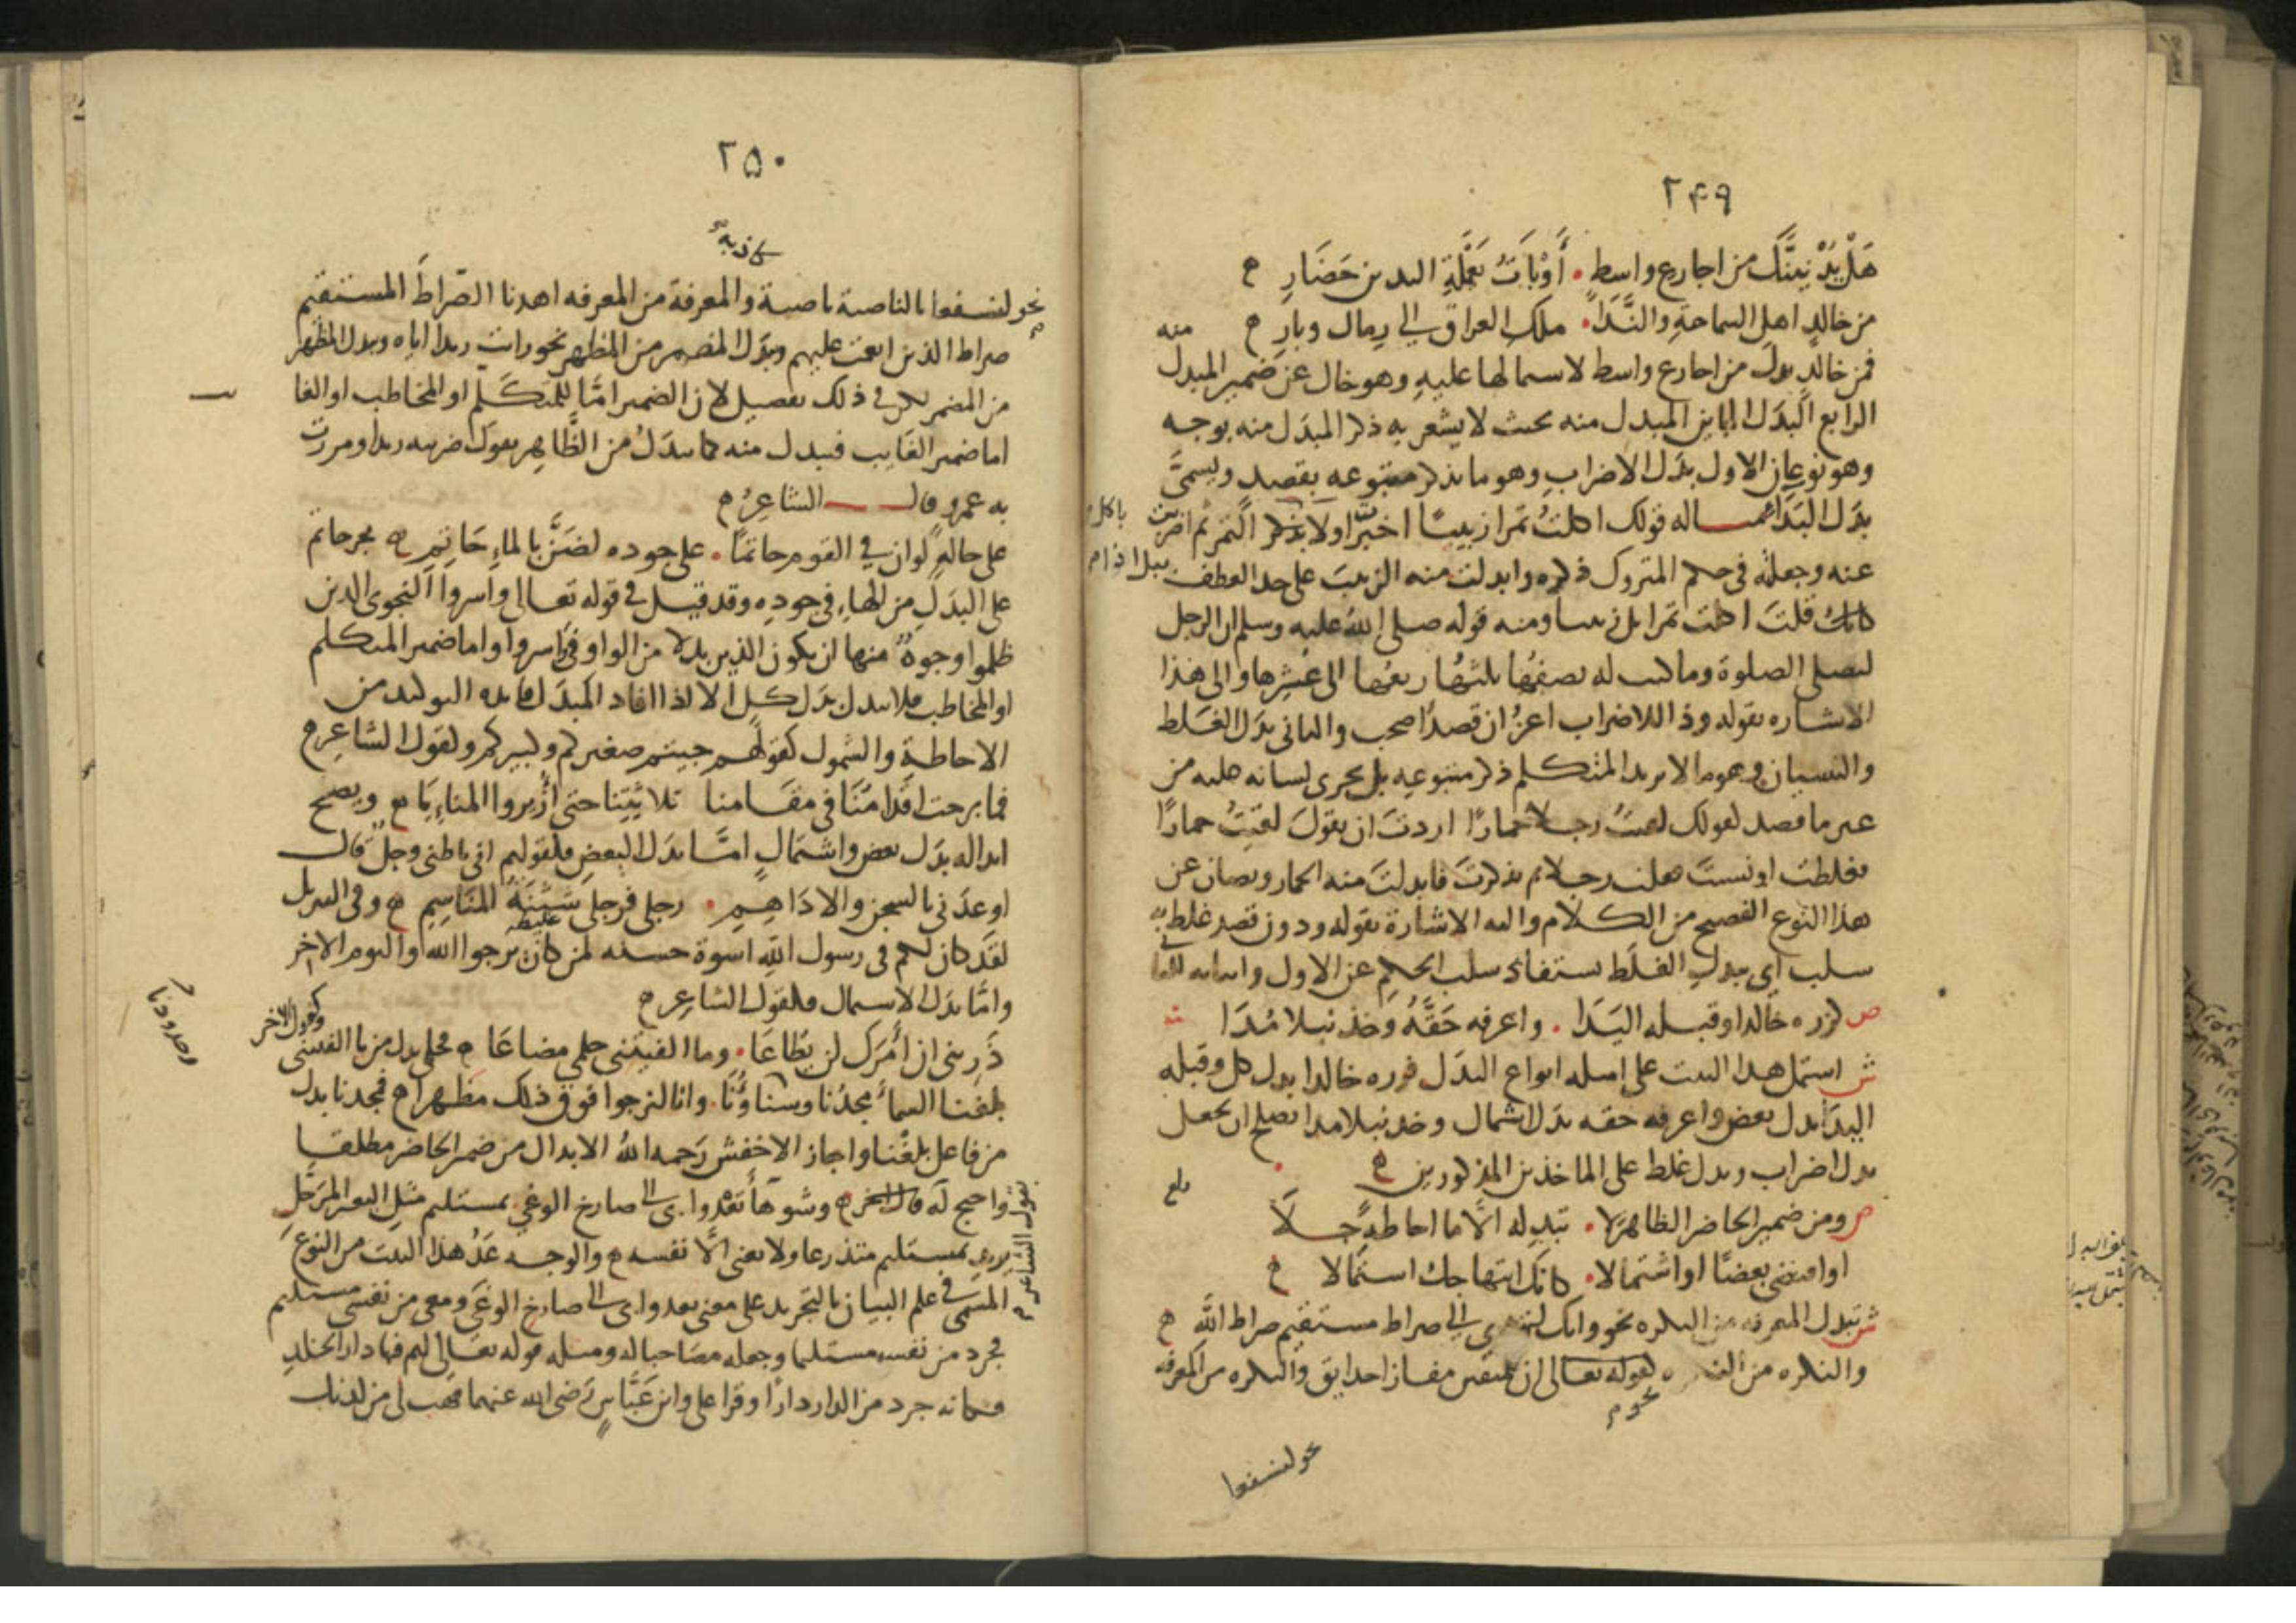 ٢٤٩
هَلْ يُدْنِيَنَّكَ من اجارع واسطٍ . أَوْبَاتُ يَعْمَلَةِ اليدين حَضَارِ
من خالدٍ اهلِ السماحةِ والنَّدَا . ملكِ العراق الى رمال وبارِ
فمن خالدٍ بدل من اجارع واسط لاشتمالها عليهِ وهو خال عن ضمير المبدل منه
الرابع البدَل المباين المبدل منه بحيث لا يشعر بهِ ذكر المبدَل منه بوجه
وهو نوعان الاول بدَل الاضراب وهو ما يذكر متبوعه بقصد ويسمَّى
بدَل البَدَا مثاله قولك اكلتُ تمرا زبيبًا اخبرت اولا باكل التمر ثم اضربت
عنه وجعلته فى حكم المتروك ذكره وابدلت منه الزبيب على حد العطف ببل اذا
كانك قلتَ اكلت تمرا بل زبيبا ومنه قوله صلى الله عليه وسلم ان الرجل
ليصلى الصلوة وما كتب له نصفُها ثلثهُا ربعُها الى عُشرِها والى هذا
الاشاره بقوله وذا للاضراب اعزُ ان قصدًا صحب والثانى بدَل الغَلط
والنسيان وهو ما لا يريد المتكلم ذكر متبوعهِ بل يجرى لسانه عليه من
غير ما قصد كقولك لقيتُ رجلا حمارًا اردتَ ان تقولَ لقيتُ حمارًا
فغلطت او نسيتَ فقلت رجلا ثم تذكرتَ فابدلتَ منه الحمار ويصان عن
هذا النوع الفصيح من الكلام واليه الاشارة بقوله ودون قصد غلط به
سلب اى ببدل الغلَط يستفاد سلب الحكم عن الاول واثباته للثانى
ص كزره خالدا وقبله اليَدَا . واعرفه حَقَّهُ وخذ نبلا مُدَا
ش اشتمل هذا البيت على امثله انواع البدَل فزره خالدا بدل كل وقبله
اليدَا بدل بعض واعرفه حقه بدَل اشتمال وخذ نبلا مدا يصلح ان يجعل
بدل اضراب وبدل غلط على الماخذين المذكورين
بلغ
ص ومن ضمير الحاضر الظاهرَ لا . تبدِله الَّا ما احاطةً جلَا
او اقتضى بعضًا او اشتمالا . كانَّك ابتهاجك استمالا
ش تبدل المعرفه من النكره نحو وانك لتهدى الى صراط مستقيم صراط اللَّه
والنكره من النكره كقوله تعالى ان للمتقين مفازا حدايق والنكره من المعرفه
نحو
نحو لنسفعا
٢٥٠
كاذبه
نحو لنسفعا بالناصية ناصية والمعرفة من المعرفه اهدنا الصّراطَ المستقيم
صراط الذين انعمت عليهم وبدَل المضمر من المظهر نحو رايت زيدا اياه وبدل المظهر
من المضمر لكن فى ذلك تفصيل لان الضمير امَّا للمتكَلم او المخاطب او الغا
اما ضمير الغَايب فيبدل منه كما يبدَلُ من الظَّاهِر تقول ضربته زيدا ومررت
به عمرو قال الشاعِرُ
على حالهٍ لو ان فى القوم حاتمًا . على جوده لضَنَّ بالماءِ حَاتِمِ بجر حاتم
على البدَلِ من الهاءِ فى جودِهِ وقد قيل فى قوله تعالى واسروا النجوى الذين
ظلموا وجوهٌ منها ان يكون الذين بدلا من الواو فى اسروا واما ضمير المتكلم
او المخاطب فلا يبدل بدَل كلٍ الا اذا افاد المبدَل فايده التوكيد من
الاحاطةِ والشمول كقولهم جيتم صغيركم وكبيركم وكقول الشاعِر
فما برحت اقدامُنَا فى مقامنا ثلاثتِنا حتى اُزيروا المنائِيَا ويصح
ابداله بدَل بعض واشتمالٍ امَّا بدَل البعض فكقولهم انى باطنى وجلٌ قال
اوعدَنى بالسجن والادَاهِمِ . رجلى فرجلى شَثْنَةُ المَنَاسِمِ وفى التنزيل
غليظه
لقَد كان لكم فى رسول اللهِ اسوة حسنه لمن كان يرجوا الله واليوم الاخر
وامَّا بدَل الاشتمال فكقول الشاعِر
ذَرينى ان أَمرَكِ لن يُطَاعَا . وما الفيتنى حلمى مضاعَا فحلمى بدل من يا الفيتنى
وكقول الاخر
بلغنا السماءَ مجدُنا وسناؤُنَا . وانا لنرجوا فوق ذلك مظهرا فمجدنا بدل
من فاعل بلغْنا واجاز الاخفش رَحمه اللهُ الابدال من ضمير الحاضر مطلقا
واحتج لَه بقول الشاعر وشوهَا تَعْدُوا بى الى صارخ الوغى بمستليم مثلِ البعير المُرَحَّلِ
يروى بمستليم متذرعا ولا يعنى الَّا نفسه والوجه عَدُ هذا البيت من النوعِ
المسمى فى علم البيان بالتجريد على معنى تعدوا بى الى صارخ الوغَى ومعى من نفسى مستليم
فجرد من نفسه مستليما وجعله مصَاحبا له ومثله قوله تعَالى لهم فيها دار الخلدِ
فكانه جرد من الدار دارًا وقرا على وابن عَبَّاسٍ رَضى الله عنهما فهب لى من لدنك